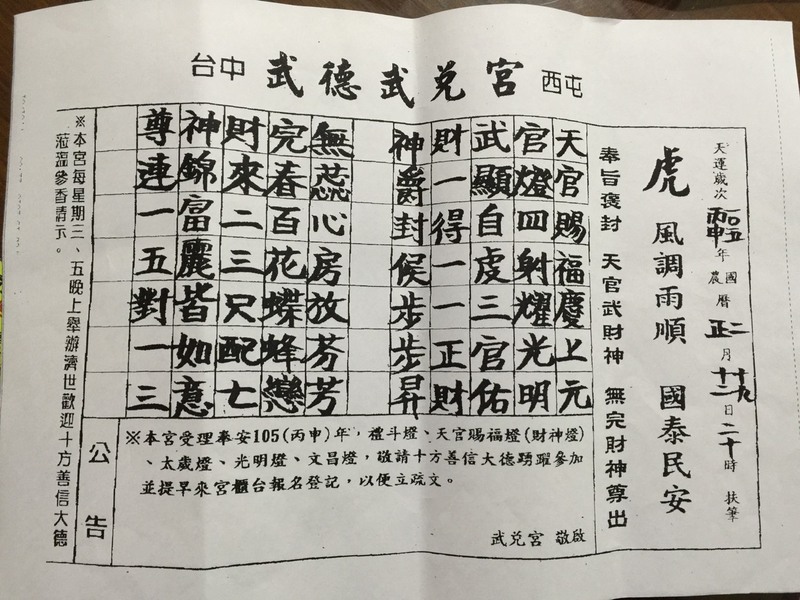 台中 武德武兌宮 西屯
天運歲次 一○五 丙申 年 國農曆 二正 月 十九十二 日 二十時 扶筆
虎 風調雨順 國泰民安
奉旨褒封 天官武財神 無完財神尊出
天官賜福慶上元
官燈四射耀光明
武顯自虔三官佑
財一得一一正財
神爵封侯步步昇
無蕊心房放芬芳
完春百花蝶蜂戀
財來二三只配七
神錦富麗皆如意
尊連一五對一三
公告
※本宮受理奉安105(丙申)年，禮斗燈、天官賜福燈(財神燈)
、太歲燈、光明燈、文昌燈，敬請十方善信大德踴躍參加
並提早來宮櫃台報名登記，以便立疏文。
武兌宮 敬啟
※本宮每星期三、五晚上舉辦濟世歡迎十方善信大德
蒞臨參香請示。